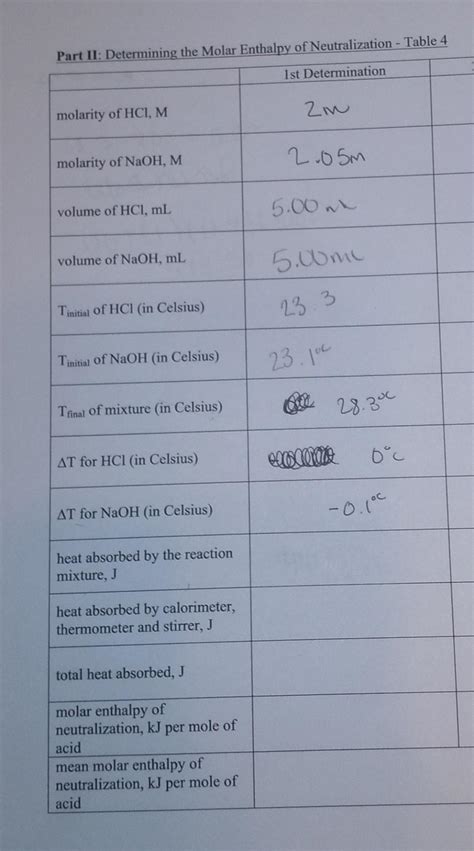 Part II: Determining the Molar Enthalpy of Neutralization - Table 4
1st Determination
molarity of HCl, M 2m
molarity of NaOH, M 2.05m
volume of HCl, mL 5.00 m
volume of NaOH, mL 5.00mL
Tinitial of HCl (in Celsius) 23.3
Tinitial of NaOH (in Celsius) 23.1°C
Tfinal of mixture (in Celsius) 28.3°C
ΔT for HCl (in Celsius) 0°C
ΔT for NaOH (in Celsius) -0.1°C
heat absorbed by the reaction
mixture, J
heat absorbed by calorimeter,
thermometer and stirrer, J
total heat absorbed, J
molar enthalpy of
neutralization, kJ per mole of
acid
mean molar enthalpy of
neutralization, kJ per mole of
acid